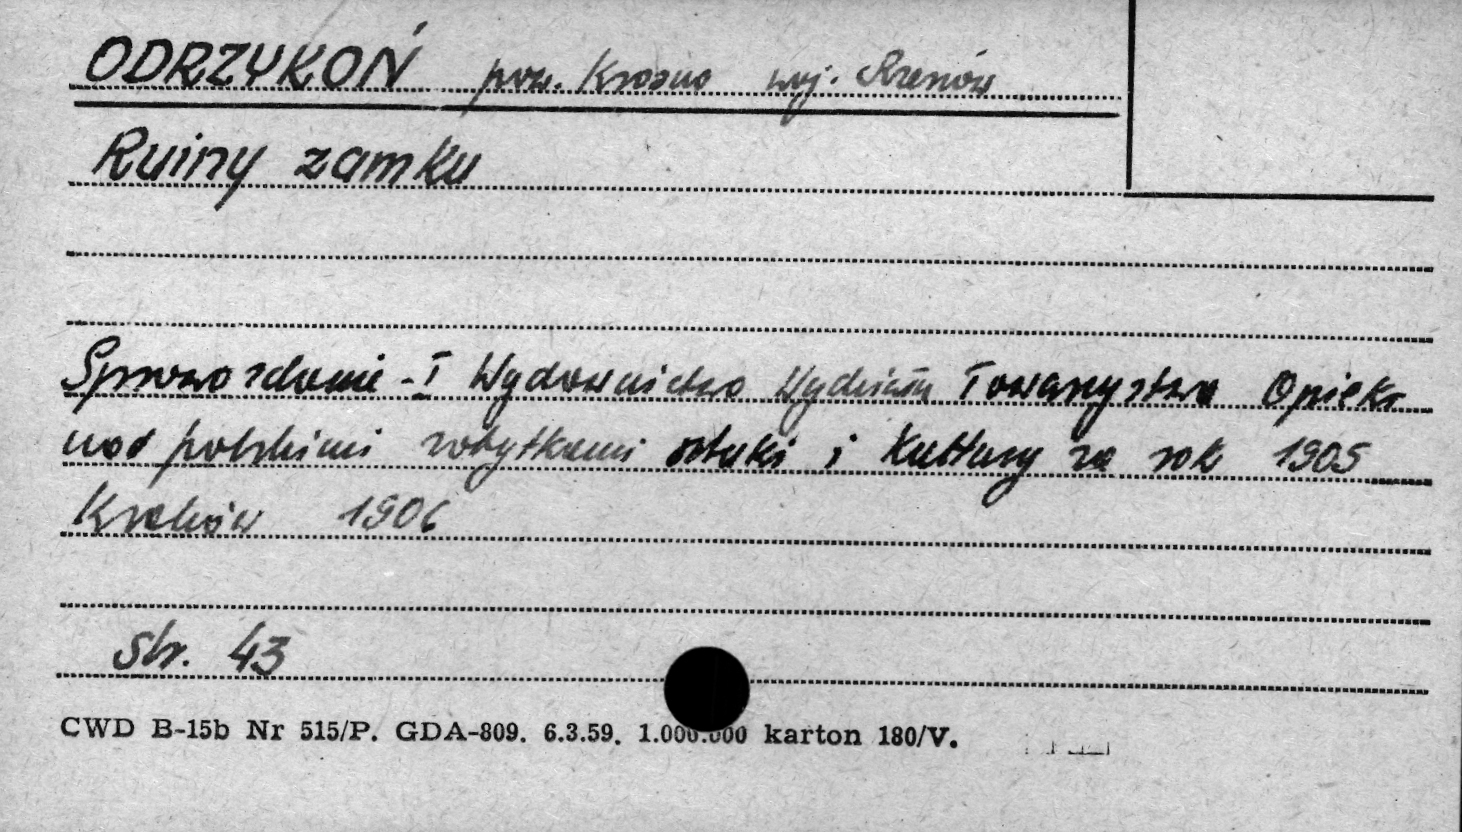 ODRZYKOŃ pow. Krosno woj. Rzeszów
Ruiny zamku
Sprawozdanie - I Wydawnictwo Wydziału Towarzystwa Opieki
nad polskimi zabytkami sztuki i Kultury za rok 1905
Kraków 1906
Str. 43
CWD B-15b Nr 515/P. GDA-809. 6.3.59. 1.000.000 karton 180/V.